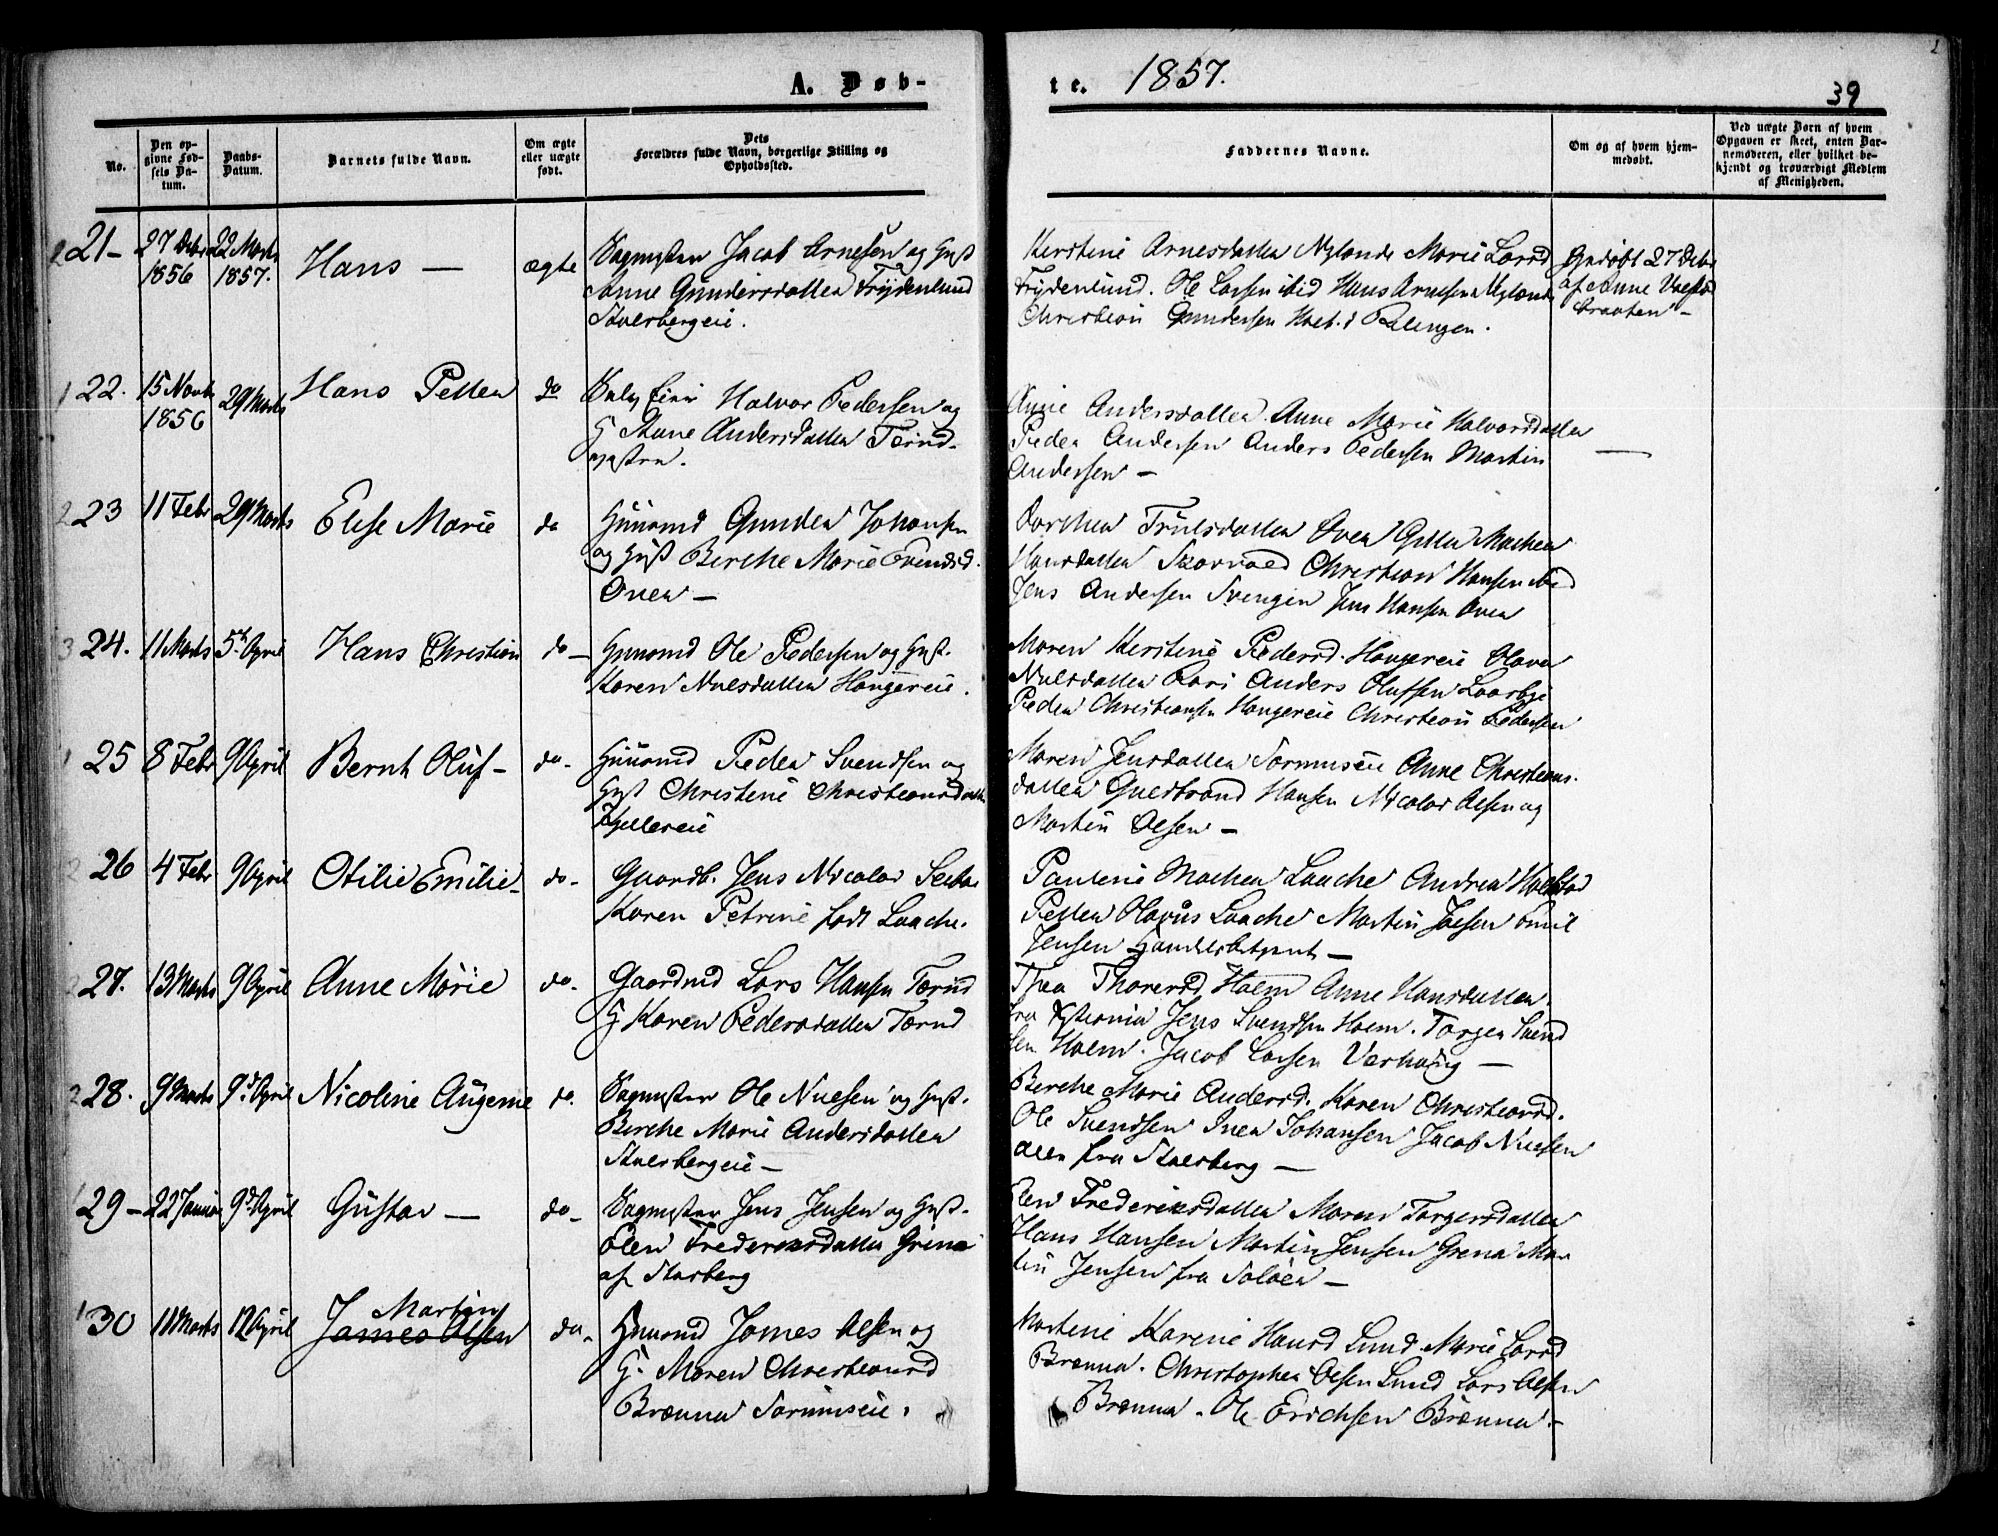 A. Døb-
te. 1857.
39
No.
Den op-
givne Fød-
sels Da-
tum.
Daabs-
Datum.
Barnets fulde Navn.
Om ægte
eller uægte
født.
Dets
Forældres fulde Navn, borgerlige Stilling og
Opholdssted.
Faddernes Navne.
Om og af hvem hjem-
medøbt.
Ved uægte Børn af hvem
Opgaven er skeet, enten Bar-
nemoderen, eller hvilket be-
kjendt og troværdigt Medlem
af Menigheden.
21 - 27 Debr 22 Marts
1856 1857.
Hans -
ægte
Jacob Arnesen og Hust
Anne Gundersdatter Frydenlund
Stalsbergeie.
Kirstine Arnesdatter Nylande Marie Larsd
Frydenlund. Ole Larsen ibid Hans Arnesen Nylande
Christian Gundersen Holt i Rælingen.
Hjdøbt 27 Debr
af Anne
braaten -
22. 15 Novb 29 Marts
1856
Hans Petter
do
Halvor Pedersen og
H Anne Andersdatter Tørud-
Anne Andersdatter Anne Marie Halvorsdatter
Peder Andersen Anders Pedersen Martin
Andersen -
23 11 Febr 29 Marts
Elise Marie
do
Huusmd Gunder Johansen
og Hust Berthe Marie Evendsd.
Oven -
Dorthea Trulsdatter Oven Mathea
Hansdatter Christian Hansen ibid
Jens Andersen Jens Hansen Oven
24. 11 Marts 5te April
Hans Christian
do -
Huusmd Ole Pedersen og Hust.
Karen Nielsdatter Haugereie.
Maren Kirstine Pedersd. Haugereie Olava
Nielsdatter Anders Olufsen
Peder Christiansen Haugereie Christian Pedersen
25 8 Febr 9 April
Bernt Oluf -
do -
Huusmd Peder Svendsen og
Hust Christine Christiansdatter
Maren Jensdatter Anne Christians-
datter Guldbrand Hansen Nicolai Olsen og
Martin Olsen -
26 4 Febr 9 April
Otilie Emilie -
do -
Gaardb. Jens Nicolai
Karen Petrine født Laache.
Pauline Mathea Laache Andrea
Petter Olavus Laache Martin Emil
Jensen Handelsbetjent -
27. 13 Marts 9 April
Anne Marie
do -
Gaardmd Lars Hansen Tørud
H Karen Pedersdatter Tørud
Thea Thorersd Holm Anne Hansdatter
fra Jens Svendsen Holm. Torger Svend
sen Holm. Jacob Larsen -
28. 9 Marts 9d April
Nicoline Augenie
do.
Ole Nielsen og Hust.
Berthe Marie Andersdatter
Stalsbergeie -
Berthe Marie Andersd. Karen Christiansd.
Ole Svendsen Iver Johansen Jacob Nielsen
alle fra Stalsberg -
29 - 22 Januar 9d April
Gustav -
do -
Jens Jensen og Hust.
Olea Frederiksdatter
af Stalsberg
Frederiksdatter Maren Torgersdatter
Hans Hansen Martin Jensen Mar
tin Jensen fra Soløer -
30 11 Marts 12 April
Martin
James Olsen
do -
Huusmd James Olsen og
H. Maren Christiansd
Brænna
Martine Karine Hansd Lund Marie Larsd
Brænna. Christopher Olsen Lund Lars Olsen
Brænna. Ole Erichsen Brænna. -